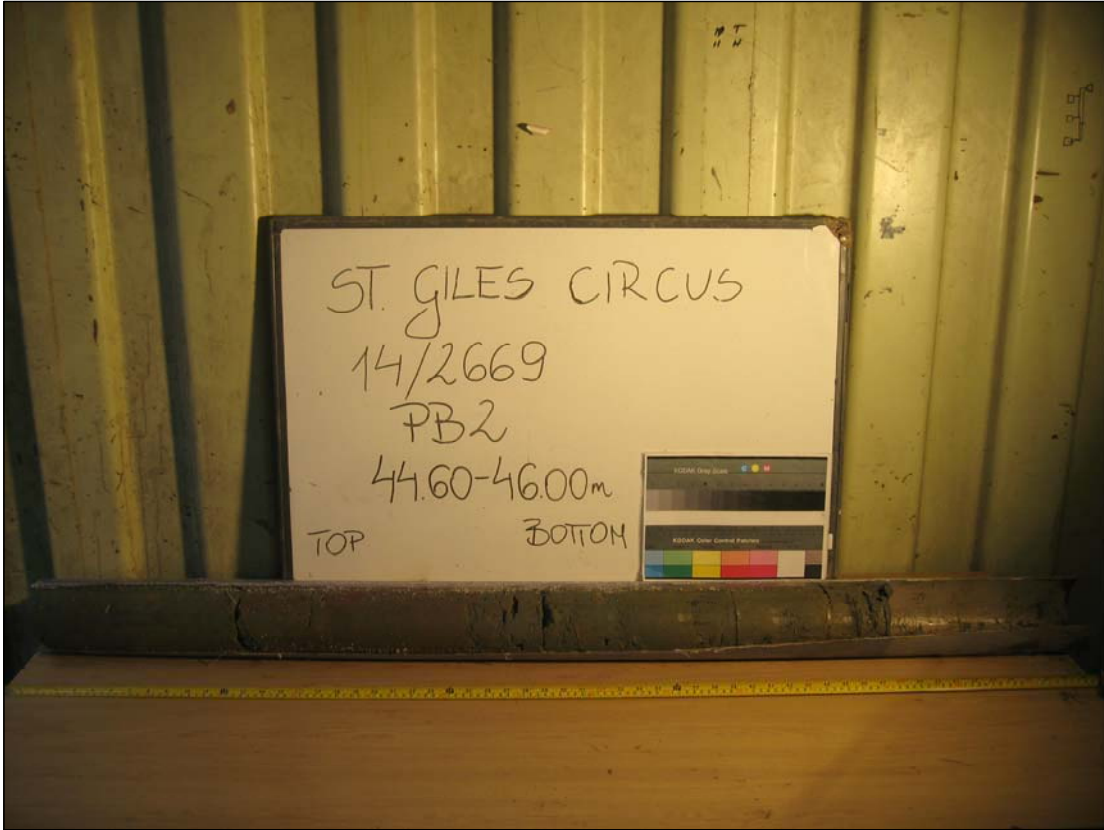 ST. GILES CIRCUS
14/2669
PB2
44.60-46.00m
TOP
BOTTOM
KODAK Gray Scale
C
M
KODAK Color Control Patches